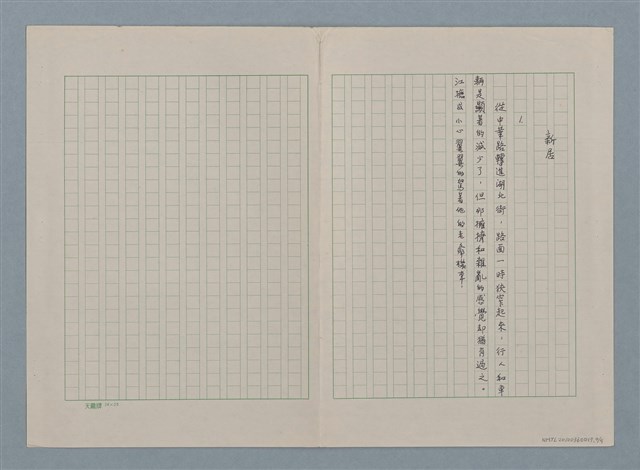 新居
1.
從中華路轉進湖北街，路面一時狹窄起來，行人和車
輛是顯著的減少了，但那擁擠和雜亂的感覺却猶有過之。
江進成小心翼翼的駕着他的老爺機車
天龍牌